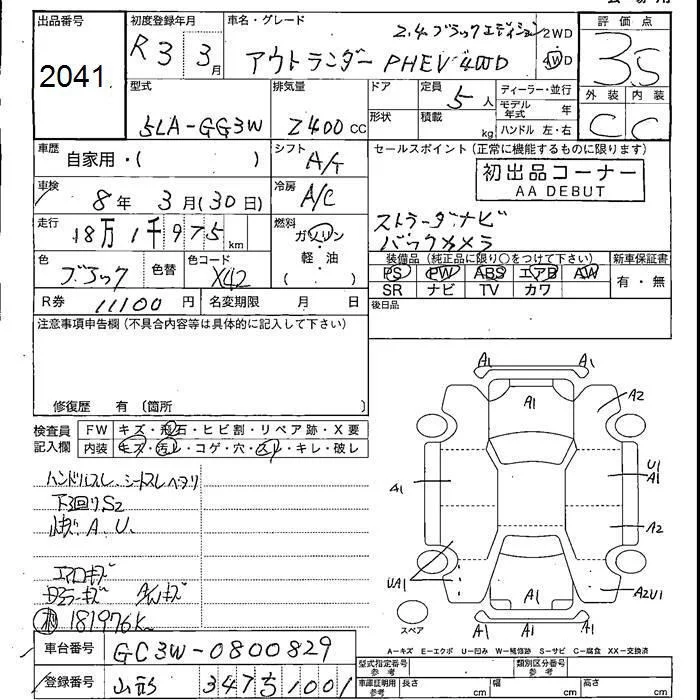 出品番号
2041
初度登録年月
R3 3月
車名・グレード
2.4.ブラックエディション
アウトランダー PHEV 4WD
2WD
4WD
評価点
3.5
型式
5LA-GG3W
排気量
2400 cc
ドア
定員
5人
形状
積載
kg
ディーラー・並行
モデル年式 年
ハンドル 左・右
外装 内装
C C
車歴
自家用・( )
シフト
A/T
セールスポイント (正常に機能するものに限ります)
初出品コーナー
AA DEBUT
車検
8年 3月(30日)
冷房
A/C
走行
18万1千975km
燃料
ガソリン
軽・油
( )
ストラーダナビ
バックカメラ
色
ブラック
色替
色コード
X42
装備品 (純正品に限り○をつけて下さい)
PS PW ABS エアB AW
SR ナビ TV カワ
新車保証書
有・無
R券 11100円
名変期限 月 日
後日品
注意事項申告欄 (不具合内容等は具体的に記入して下さい)
修復歴 有 〔箇所 〕
検査員記入欄
FW キズ・飛石・ヒビ割・リペア跡・X要
内装 キズ・汚レ・コゲ・穴・スレ・キレ・破レ
ハンドルスレ、シートスレヘタリ
下回りS2
A.U.
エアロキズ
ドアミラーキズ AWキズ
181976K
A1 A1
A1
A2
A1
U1
A1
A2
UA1
A1
A2U1
A1 A1 A1
スペア
A-キズ E-エクボ U-凹み W-補修跡 S-サビ C-腐食 XX-交換済
車台番号
GC3W-0800829
登録番号
山形 347 1001
型式指定番号
参考
類別区分番号
参考
車庫証明用
参考
長さ cm
幅 cm
高さ cm